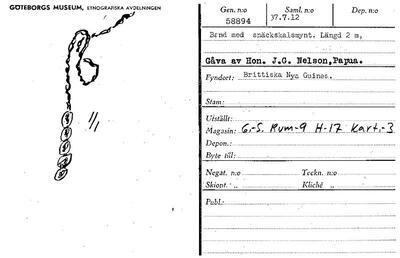 GÖTEBORGS MUSEUM, ETNOGRAFISKA AVDELNINGEN
1/1
Gen. n:o
58894
Saml. n:o
37.7.12
Dep. n:o
Brnd med snäckskalsmynt. Längd 2 m,
Gåva av Hon. J.G. Nelson, Papua.
Fyndort: Brittiska Nya Guinea.
Stam:
Utställt:
Magasin: G.-S. Rum-9 H-17 Kart.-3
Depon.:
Byte till:
Negat. n:o
Teckn. n:o
Skiopt. „
Kliché „
Publ.: